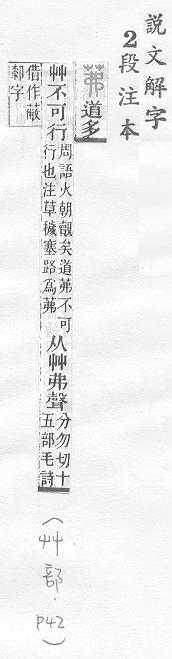 説文解字
2段注本
茀道多
艸不可行周語火朝覿矣道茀不可行也注草穢塞路爲茀从艸弗聲分勿切十五部毛詩
借作蔽厀字
(艸部.P42)